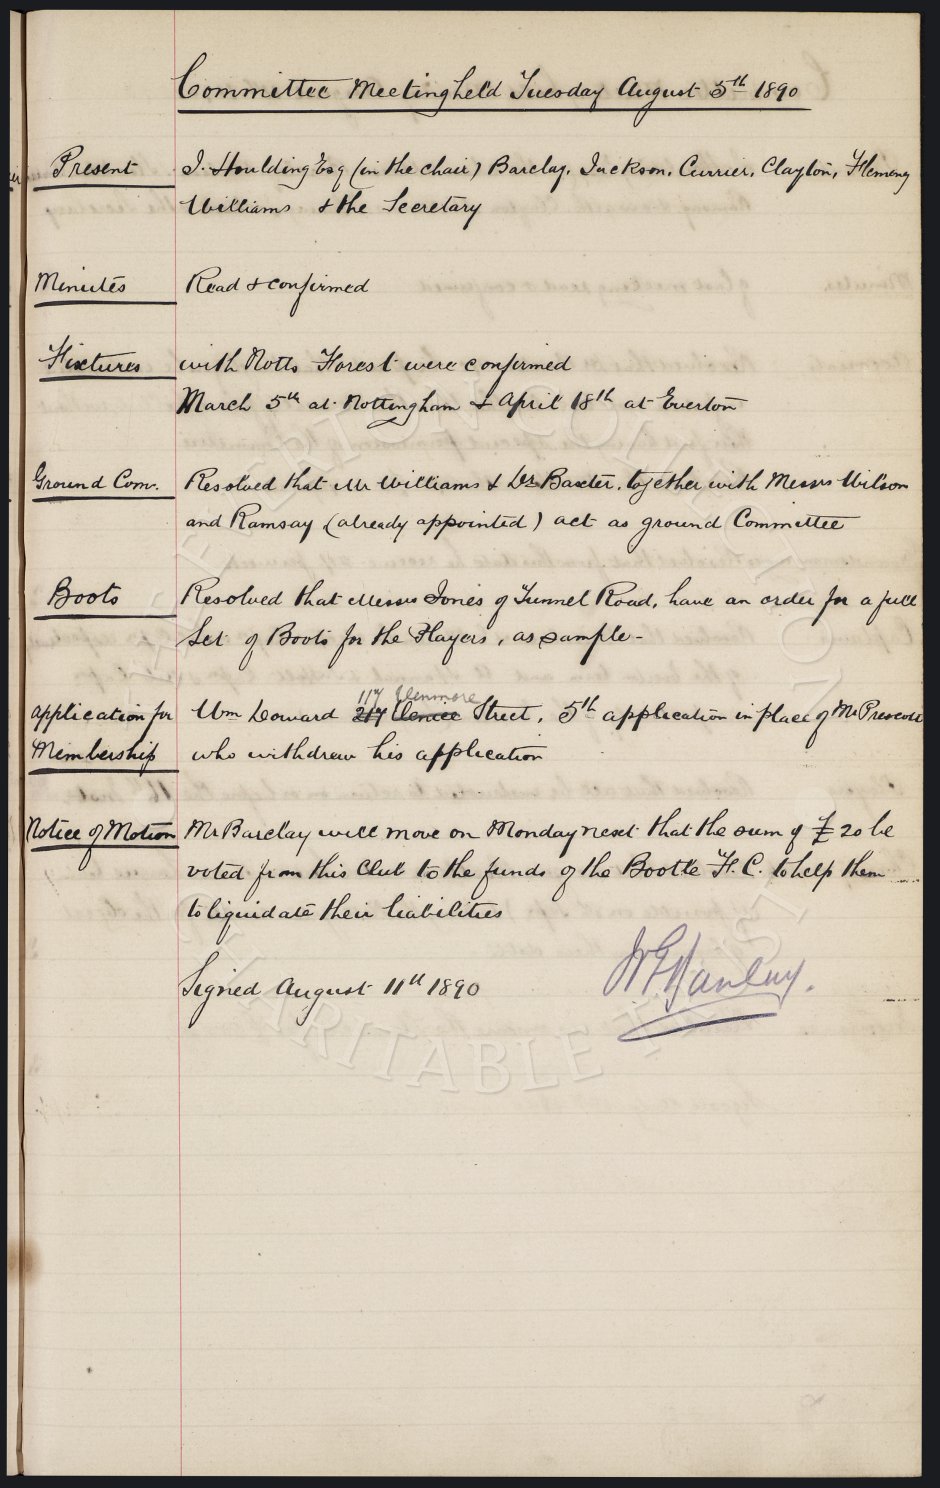 Committee Meeting held Tuesday August 5th 1890
Present J. Houlding Esq (in the chair) Barclay, Jackson, Currier, Clayton, Flemeny
Williams & the Secretary
Minutes Read & confirmed
Fixtures with Notts Forest were confirmed
March 5th at Nottingham & April 18th at Everton
Ground Com. Resolved that Mr Williams & Dr Baxter, together with Messrs Wilson
and Ramsay (already appointed) act as ground Committee
Boots Resolved that Messrs Jones of Tunnel Road, have an order for a full
Set of Boots for the Players, as sample -
117 Venmore
Application for Wm Doward 217 Venice Street, 5th application in place of Mr Prescott
Membership who withdrew his application
Notice of Motion Mr Barclay will move on Monday next that the sum of £20 be
voted from this Club to the funds of the Bootle F.C. to help them
to liquidate their liabilities
Signed August 11th 1890
CHARITABLE TRUST
EVERTON COLLECTION